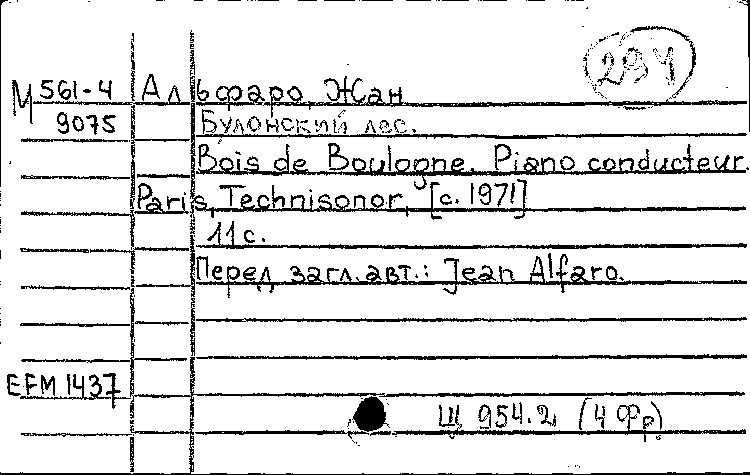 294
М 561-4 Альфаро, Жан
9075 Булонский лес.
Bois de Boulogne. Piano conducteur.
Paris, Technisonor, [c. 1971]
11 с.
Перед загл. авт.: Jean Alfaro.
EFM 1437
Щ 954.2 (4 Фр)